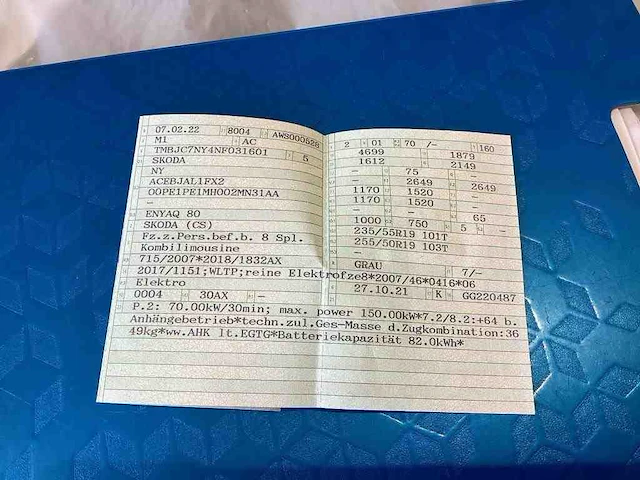 07.02.22 8004 AWS000528
M1 AC
TMBJC7NY4NF031601 5
SKODA
NY
ACEBJAL1FX2
OOPE1PE1MH002MN31AA
–
ENYAQ 80
SKODA (CS)
Fz.z.Pers.bef.b. 8 Spl.
Kombilimousine
715/2007*2018/1832AX
2017/1151;WLTP;reine Elektrofze8*2007/46*0416*06
Elektro
0004 30AX –
P.2: 70.00kW/30min; max. power 150.00kW*7.2/8.2:+64 b.
Anhängebetrieb*techn.zul.Ges-Masse d.Zugkombination:36
49kg*ww.AHK lt.EGTG*Batteriekapazität 82.0kWh*
2 01 70 /– 160
4699 1879
1612 2149
– 75 –
– 2649 2649
1170 1520 –
1170 1520 –
– – 65
1000 750 5 –
235/55R19 101T
255/50R19 103T
–
GRAU 7/–
27.10.21 K GG220487